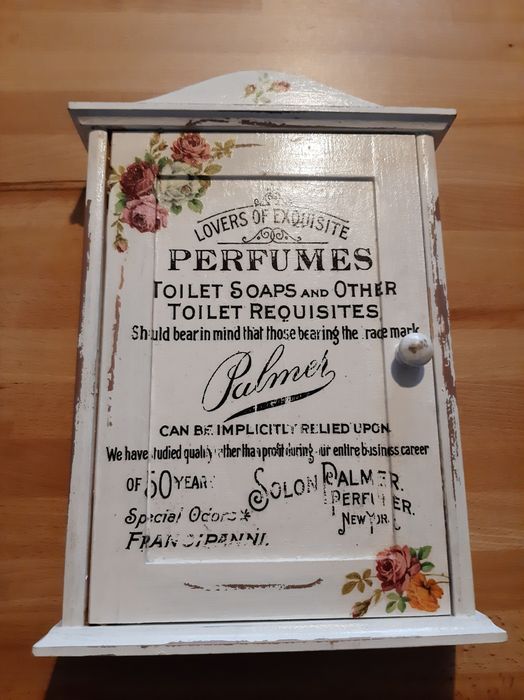 LOVERS OF EXQUISITE
PERFUMES
TOILET SOAPS AND OTHER
TOILET REQUISITES
Should bear in mind that those bearing the race mark
Palmer
CAN BE IMPLICITLY RELIED UPON.
We have studied quality rather than profit during our entire business career
OF 50 YEARS
SOLON PALMER.
PERFUMER.
NEW YORK
Special Odors
FRANGIPANNI.